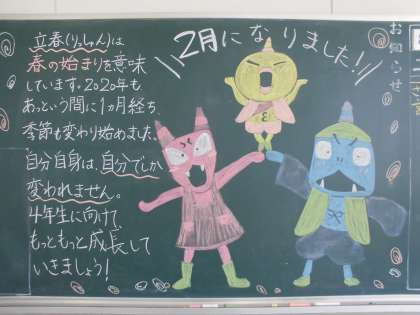 立春(りっしゅん)は
春の始まりを意味
しています。2020年も
あっという間に1ヵ月経ち
季節も変わり始めました。
自分自身は、自分でしか
変われません。
4年生に向けて
もっともっと成長して
いきましょう!
2月になりました!
お知らせ